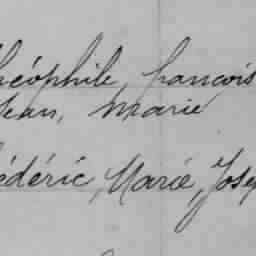 héophile, francois
Jean, Marie
édéric, Marie, Jose